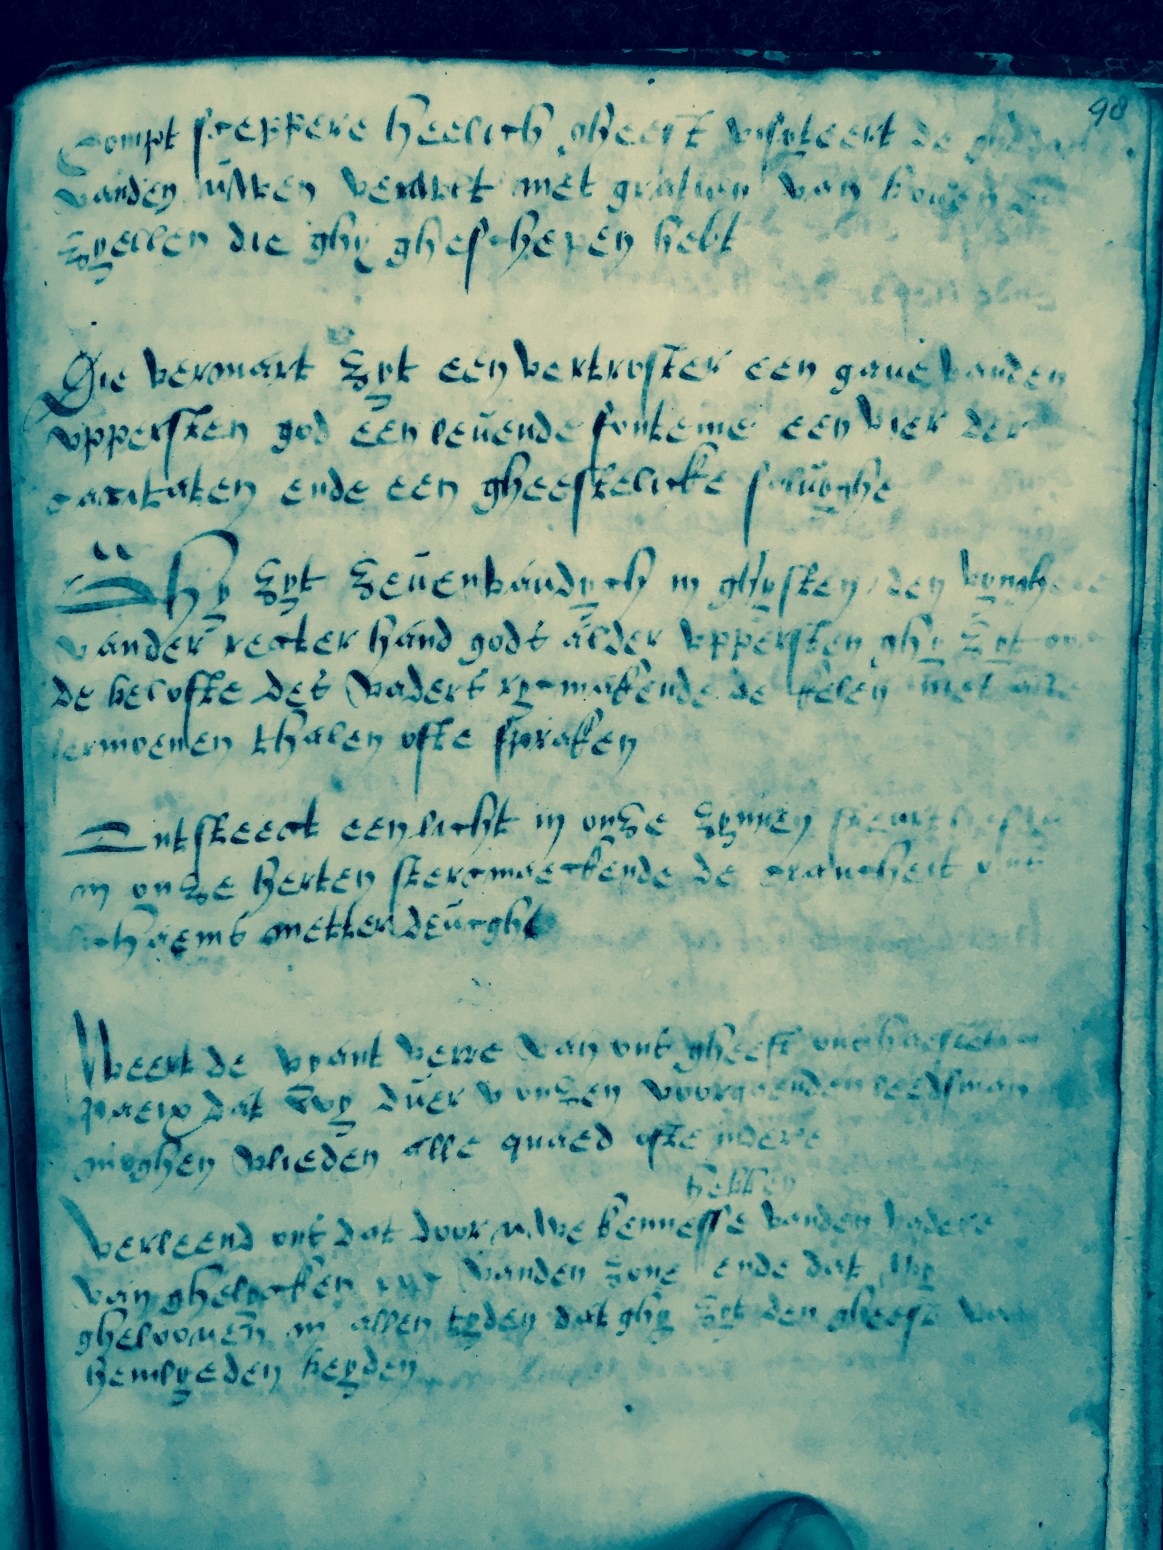 98
Compt sceppere heelich gheest visyteert de
vanden uwen vervult met gratien van boven
zyellen die ghy gheschepen hebt
Die vermart zyt een vertroster een gave vanden
uppersten god een levende fonteine een vier der
caritaten ende een gheestelicke salvynghe
Ghy zyt zevenvaudych in ghyften den vynghere
vander rechter hand gods alder uppersten ghy zyt
de belofte des vaders rycmakende de kelen met
sermoenen thalen ofte spraken
Ontsteect een licht in onze zynnen
in onze herten stercmaeckende de cranckheit
lichaems metter deucght
Weert de vyant verre van ons gheeft ons
paeix dat wy duer u onzen voorgaenden leedsman
moghen vlieden alle quaed ofte
hebben
Verleend ons dat door uwe kennesse vanden vadere
van ghelycken vanden zone ende dat wy
ghelooven in allen tyden dat ghy zyt den gheest van
hemlyeden beyden